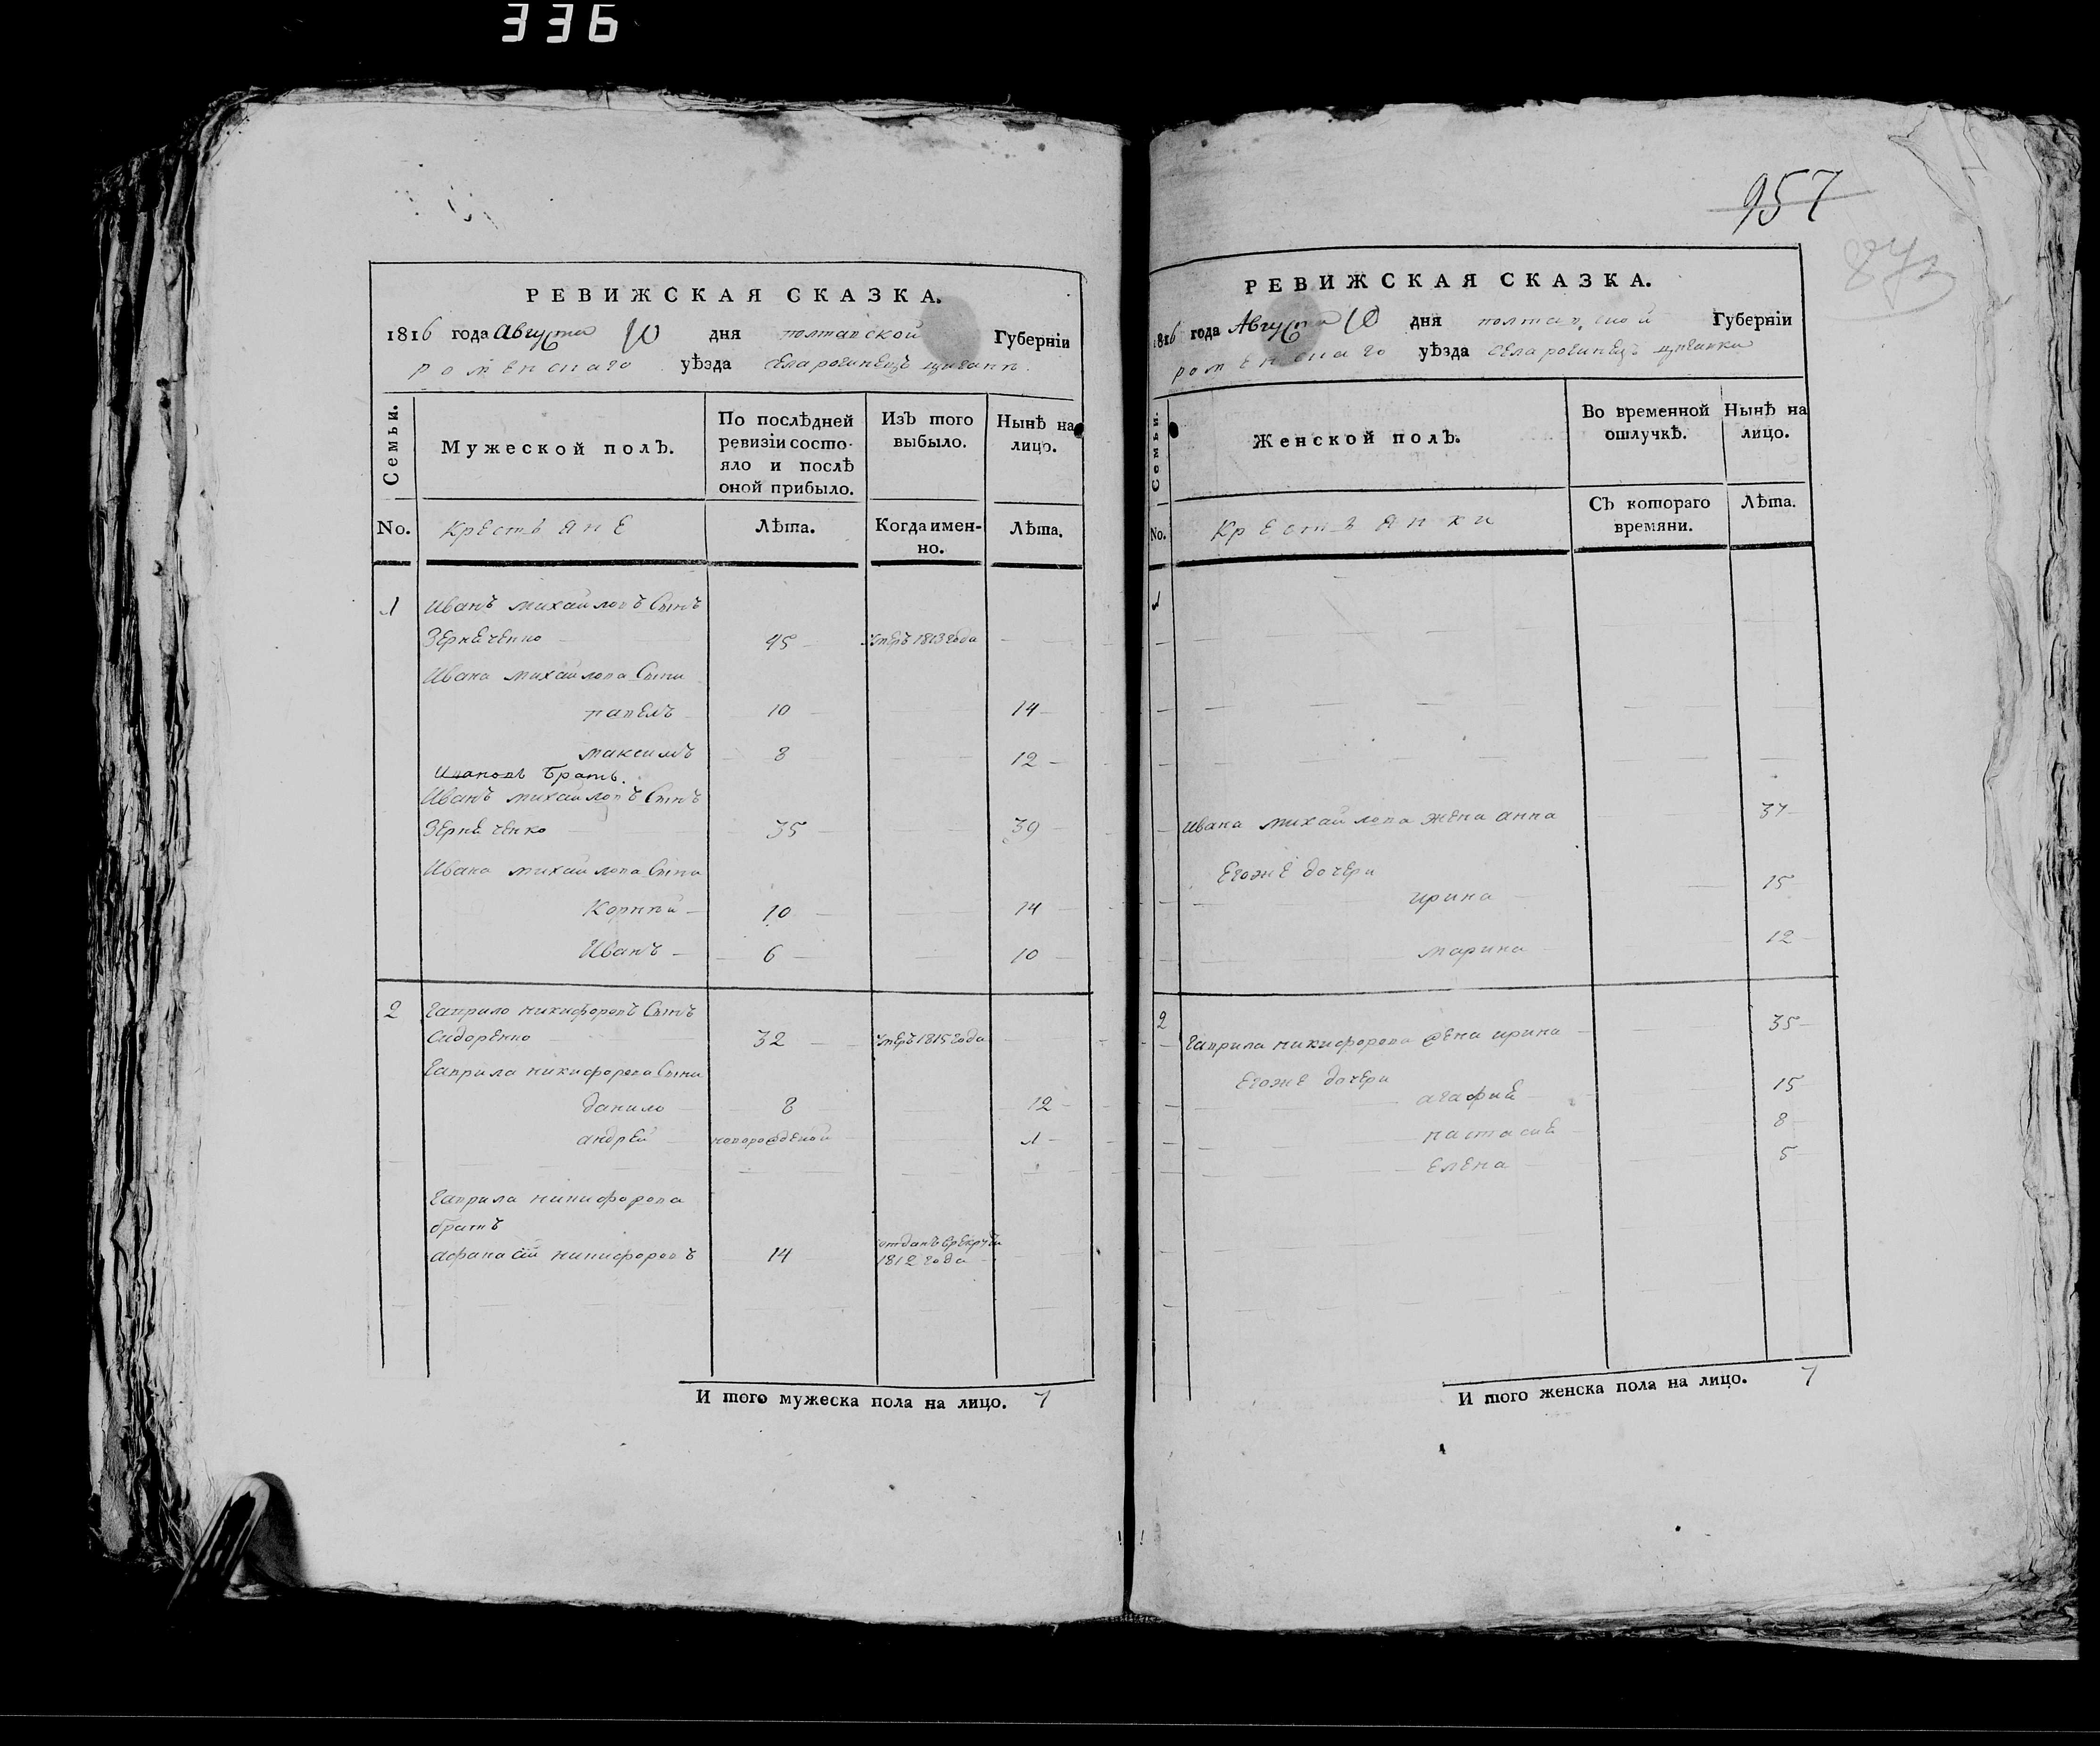 336
РЕВИЖСКАЯ СКАЗКА.
1816 года Августа 10 дня полтавской Губерніи
роменскаго уѣзда села рогинецъ
Семьи.
Мужеской полЪ.
По послѣдней
ревизіи состо-
яло и послѣ
оной прибыло.
ИзЪ того
выбыло.
Нынѣ на
лицо.
No.
Крестьяне
Лѣта.
Когда имен-
но.
Лѣта.
1 Иванъ михайловъ Сынъ
Зерне ченко 45 умеръ 1813 года
Ивана михайлова Сыни
павелъ 10 14
максимъ 8 12
Ивановъ Братъ.
Иванъ михайловъ Сынъ
Зерне ченко 35 39
Ивана михайлова Сыни
Корней 10 14
Иванъ 6 10
2 Гаврило никифоровъ Сынъ
Сидоренко 32 умеръ 1815 года
Гаврила никифорова Сыни
данило 8 12
андрей новорожденой 1
Гаврила никифорова
братъ
афанасій никифоровъ 14 отданъ врекруты
1812 года
И того мужеска пола на лицо. 7
957
РЕВИЖСКАЯ СКАЗКА.
1816 года Августа 10 дня полтавской Губерніи
роменскаго уѣзда села рогинецъ
Семьи.
Женской полЪ.
Во временной
отлучкѣ.
Нынѣ на
лицо.
No.
Крестьянки
СЪ котораго
времяни.
Лѣта.
1
Ивана михайлова жена анна 37
Егоже дочери
ирина 15
марина 12
2
Гаврила никифорова жена ирина 35
Егоже дочери
агафия 15
настасие 8
Елена 5
И того женска пола на лицо. 7